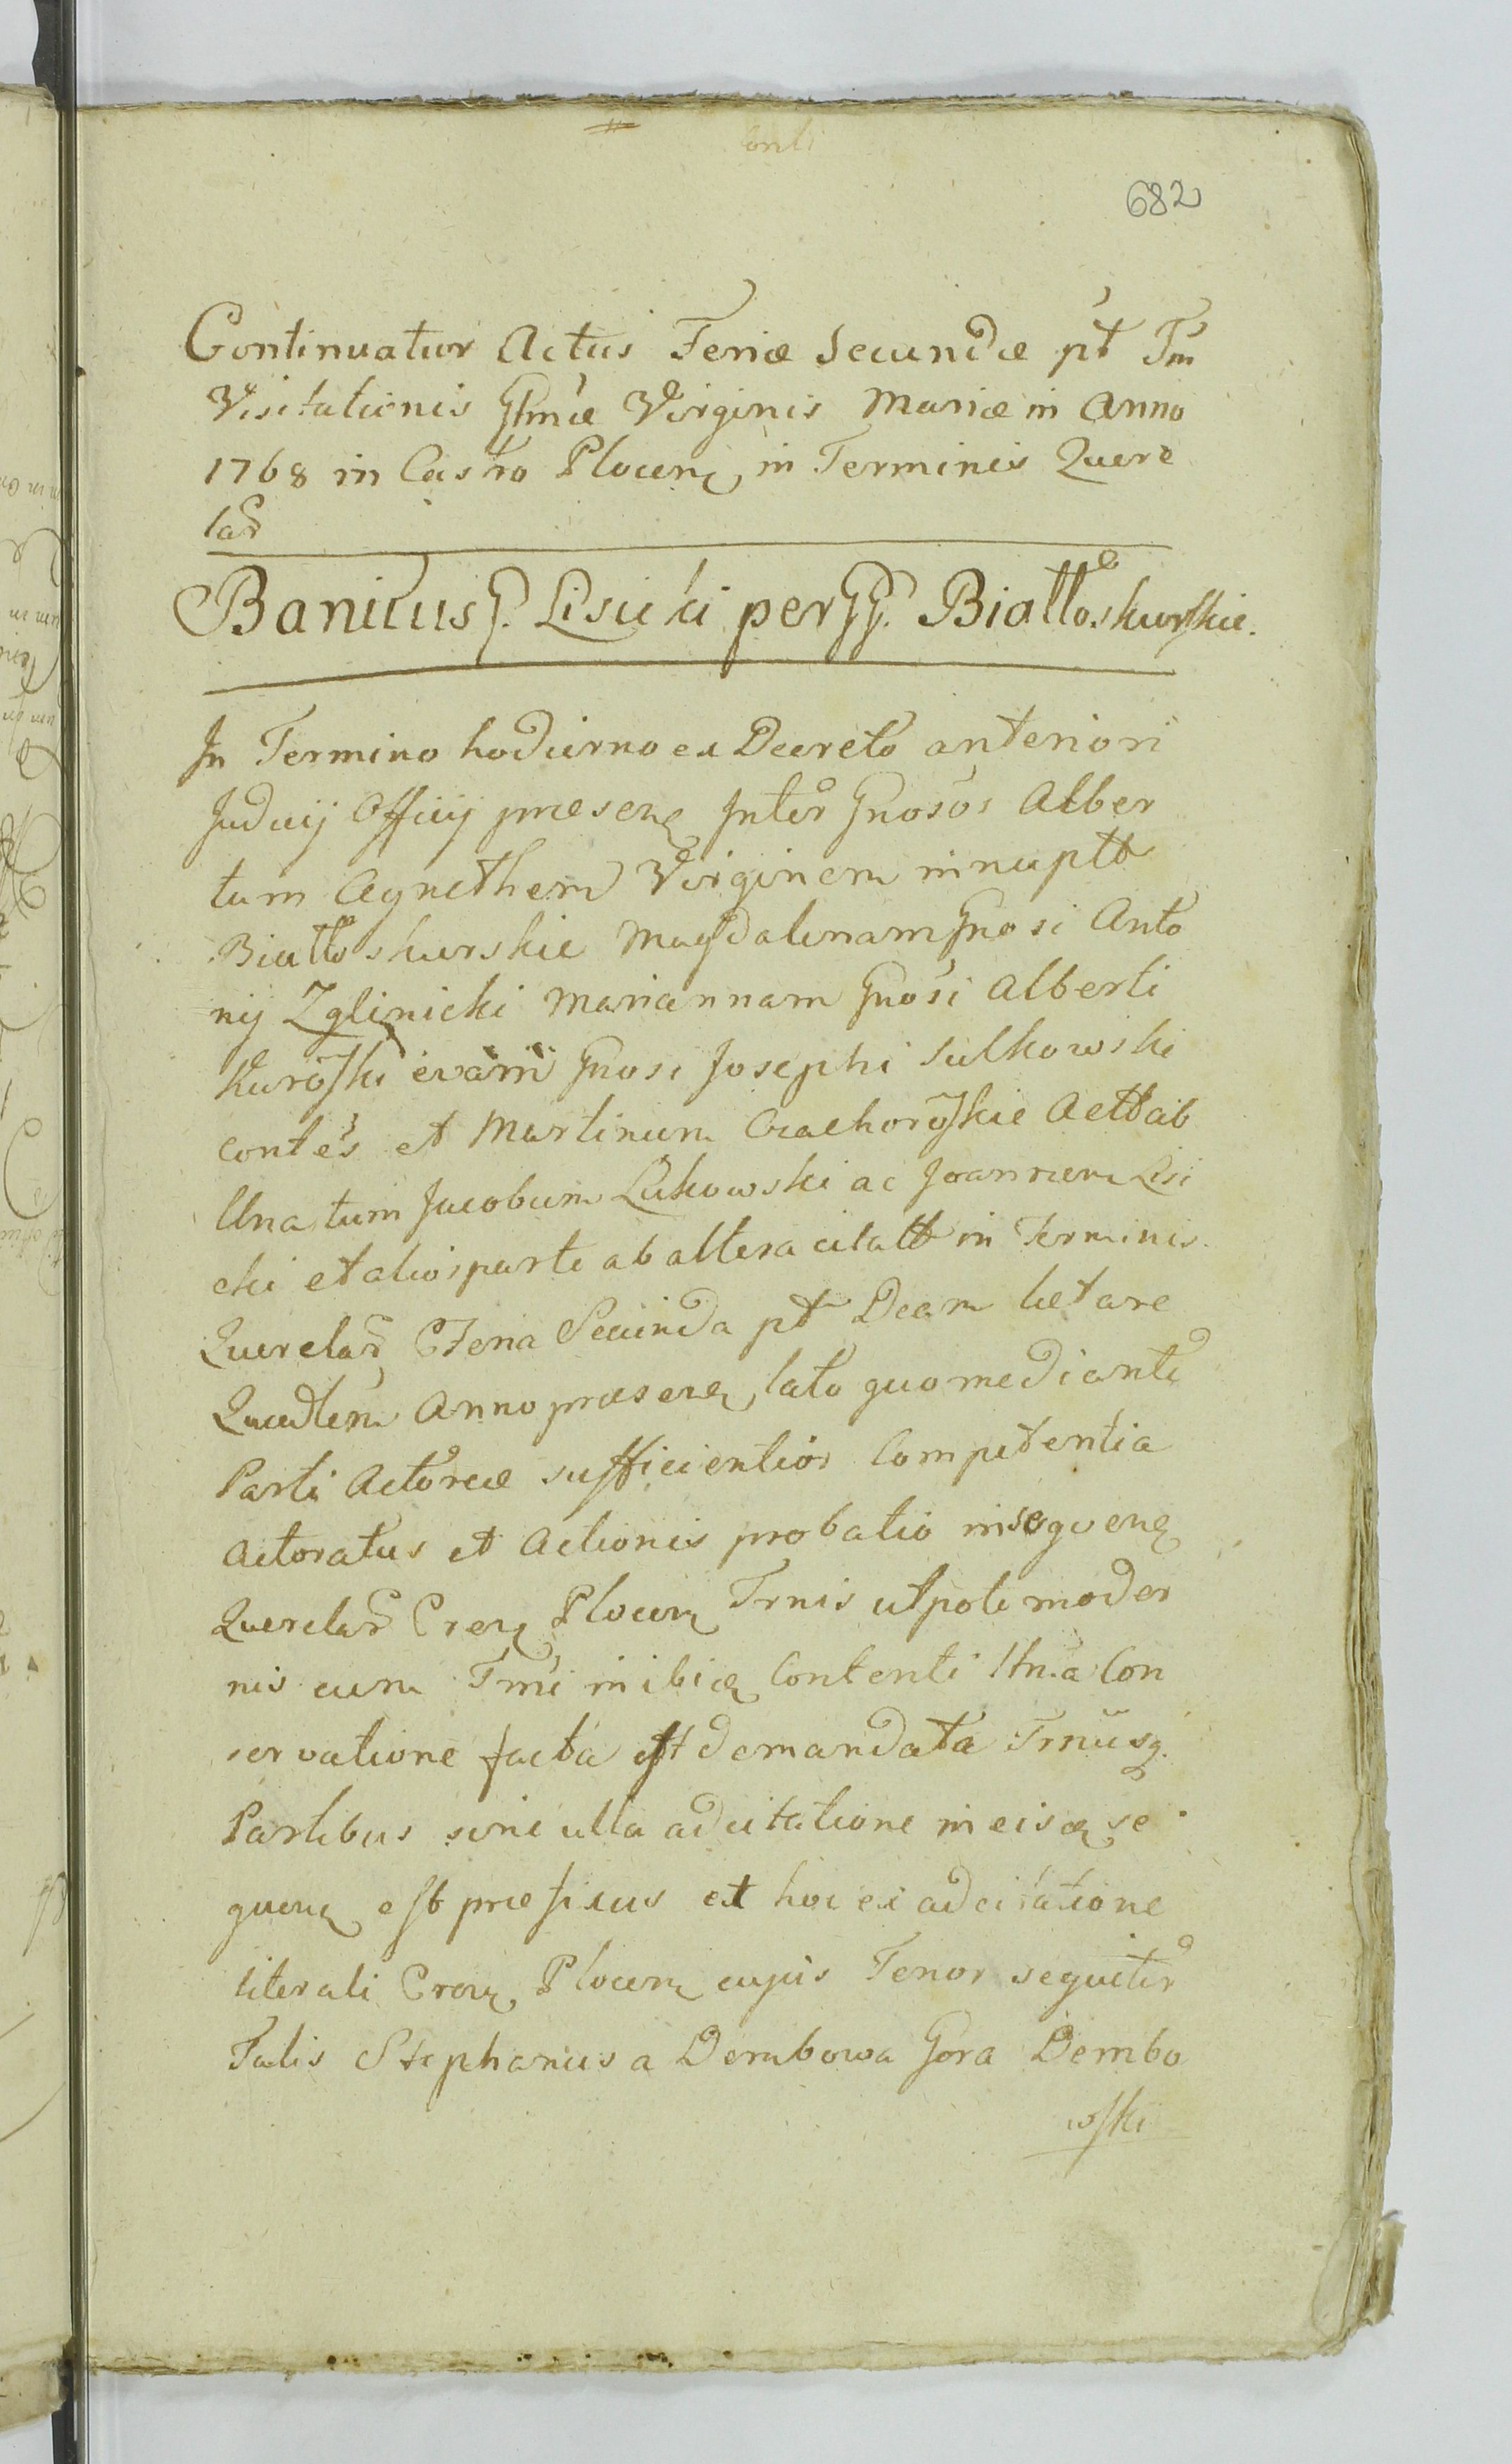 682
Continuatur Actus Feriæ Secundæ pt Fm
Visitationis Gsmæ Virginis Mariæ in Anno
1768 in Castro Plocen in Terminis Quere
lar
Banitus G. Lisicki per GG. Białłoskurskie.
In Termino hodierno ex Decreto anteriori
Judicij Officij præsen Inter Gnosos Alber
tum Agnethem Virginem innuptt
Białłoskurskie Magdalenam Gnosi Anto
nij Zglinicki Mariannam Gnosi Alberti
Kurowski evam Gnosi Josephi Sulkowski
contes et Martinum Czachorowskie Actt ab
Una tum Jacobum Lukowski ac Joannem Lisi
cki et alios parte ab altera citatt in Terminis
Querelar Feria Secunda pt Dcam lætare
Quadlem Anno præsen lato quo mediante
Parti Actoreæ sufficientior Competentia
Actoratus et Actionis probatio in sequen
Querelar Cren Plocen Trnis utpote moder
nis cum Tmi inibiq Contenti Hna Con
servatione facta est demandata Trnusq
Partibus sine ulla adcitatione in eisq se
quen est præfixus et hoc ex adcitatione
literali Cren Plocen cujus Tenor sequitur
Talis Stephanus a Dembowa Gora Dembo
wski